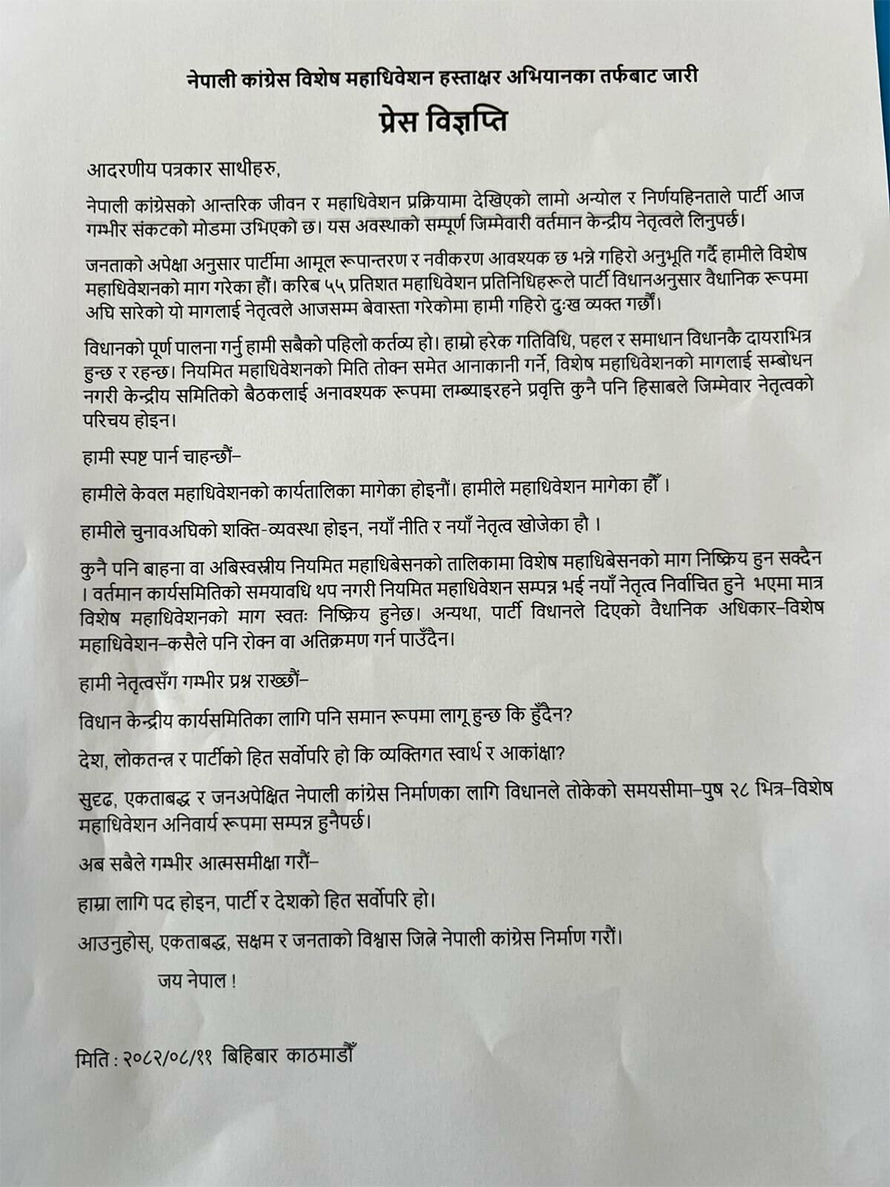 नेपाली कांग्रेस विशेष महाधिवेशन हस्ताक्षर अभियानका तर्फबाट जारी
प्रेस विज्ञप्ति
आदरणीय पत्रकार साथीहरु,
नेपाली कांग्रेसको आन्तरिक जीवन र महाधिवेशन प्रक्रियामा देखिएको लामो अन्योल र निर्णयहिनताले पार्टी आज
गम्भीर संकटको मोडमा उभिएको छ। यस अवस्थाको सम्पूर्ण जिम्मेवारी वर्तमान केन्द्रीय नेतृत्वले लिनुपर्छ।
जनताको अपेक्षा अनुसार पार्टीमा आमूल रूपान्तरण र नवीकरण आवश्यक छ भन्ने गहिरो अनुभूति गर्दै हामीले विशेष
महाधिवेशनको माग गरेका हौं। करिब ५५ प्रतिशत महाधिवेशन प्रतिनिधिहरूले पार्टी विधानअनुसार वैधानिक रूपमा
अघि सारेको यो मागलाई नेतृत्वले आजसम्म बेवास्ता गरेकोमा हामी गहिरो दुःख व्यक्त गर्छौं।
विधानको पूर्ण पालना गर्नु हामी सबैको पहिलो कर्तव्य हो। हाम्रो हरेक गतिविधि, पहल र समाधान विधानकै दायराभित्र
हुन्छ र रहन्छ। नियमित महाधिवेशनको मिति तोक्न समेत आनाकानी गर्ने, विशेष महाधिवेशनको मागलाई सम्बोधन
नगरी केन्द्रीय समितिको बैठकलाई अनावश्यक रूपमा लम्ब्याइरहने प्रवृत्ति कुनै पनि हिसाबले जिम्मेवार नेतृत्वको
परिचय होइन।
हामी स्पष्ट पार्न चाहन्छौं–
हामीले केवल महाधिवेशनको कार्यतालिका मागेका होइनौं। हामीले महाधिवेशन मागेका हौँ ।
हामीले चुनावअघिको शक्ति-व्यवस्था होइन, नयाँ नीति र नयाँ नेतृत्व खोजेका हौ ।
कुनै पनि बाहना वा अबिस्वस्नीय नियमित महाधिबेसनको तालिकामा विशेष महाधिबेसनको माग निष्क्रिय हुन सक्दैन
। वर्तमान कार्यसमितिको समयावधि थप नगरी नियमित महाधिवेशन सम्पन्न भई नयाँ नेतृत्व निर्वाचित हुने भएमा मात्र
विशेष महाधिवेशनको माग स्वतः निष्क्रिय हुनेछ। अन्यथा, पार्टी विधानले दिएको वैधानिक अधिकार–विशेष
महाधिवेशन–कसैले पनि रोक्न वा अतिक्रमण गर्न पाउँदैन।
हामी नेतृत्वसँग गम्भीर प्रश्न राख्छौं–
विधान केन्द्रीय कार्यसमितिका लागि पनि समान रूपमा लागू हुन्छ कि हुँदैन?
देश, लोकतन्त्र र पार्टीको हित सर्वोपरि हो कि व्यक्तिगत स्वार्थ र आकांक्षा?
सुदृढ, एकताबद्ध र जनअपेक्षित नेपाली कांग्रेस निर्माणका लागि विधानले तोकेको समयसीमा–पुष २८ भित्र–विशेष
महाधिवेशन अनिवार्य रूपमा सम्पन्न हुनैपर्छ।
अब सबैले गम्भीर आत्मसमीक्षा गरौं–
हाम्रा लागि पद होइन, पार्टी र देशको हित सर्वोपरि हो।
आउनुहोस्, एकताबद्ध, सक्षम र जनताको विश्वास जित्ने नेपाली कांग्रेस निर्माण गरौं।
जय नेपाल !
मिति : २०८२/०८/११ बिहिबार काठमाडौँ